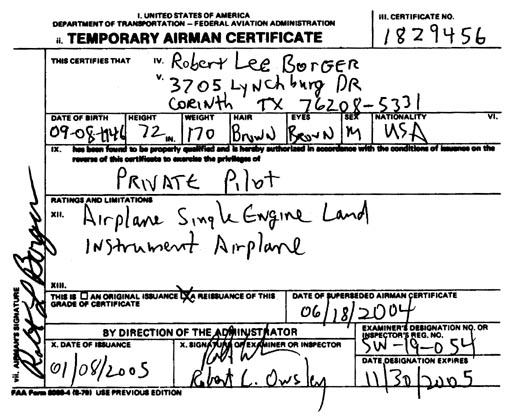 I. UNITED STATES OF AMERICA
DEPARTMENT OF TRANSPORTATION – FEDERAL AVIATION ADMINISTRATION
II. TEMPORARY AIRMAN CERTIFICATE
III. CERTIFICATE NO.
1829456
THIS CERTIFIES THAT IV. Robert Lee Borger
V. 3705 Lynchburg DR
Corinth TX 76208-5331
DATE OF BIRTH HEIGHT WEIGHT HAIR EYES SEX NATIONALITY VI.
09-08-1946 72 IN. 170 Brown Brown M USA
IX. has been found to be properly qualified and is hereby authorized in accordance with the conditions of issuance on the
reverse of this certificate to exercise the privileges of
Private Pilot
RATINGS AND LIMITATIONS
XII. Airplane Single Engine Land
Instrument Airplane
XIII.
THIS IS AN ORIGINAL ISSUANCE X A REISSUANCE OF THIS
GRADE OF CERTIFICATE
DATE OF SUPERSEDED AIRMAN CERTIFICATE
06/18/2004
VII. AIRMAN'S SIGNATURE
BY DIRECTION OF THE ADMINISTRATOR
EXAMINER'S DESIGNATION NO. OR
INSPECTOR'S REG. NO.
SW-19-054
X. DATE OF ISSUANCE
01/08/2005
X. SIGNATURE OF EXAMINER OR INSPECTOR
Robert L. Owsley
DATE DESIGNATION EXPIRES
11/30/2005
FAA Form 8060-4 (8-79) USE PREVIOUS EDITION